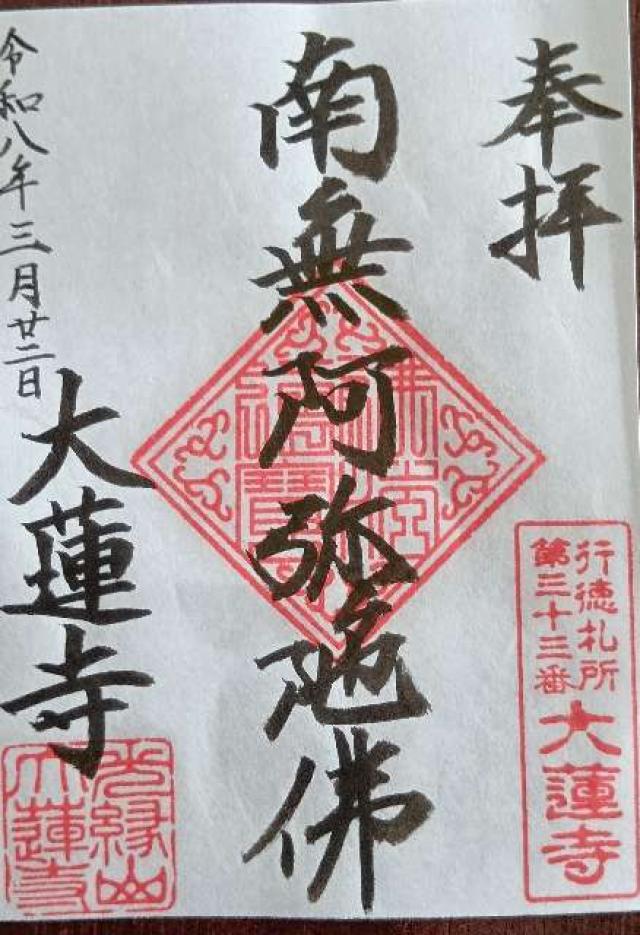 奉拝
行徳札所
第三十三番
大蓮寺
南無阿弥陀佛
佛法僧寶
令和八年三月廿二日
大蓮寺
光縁山
大蓮寺